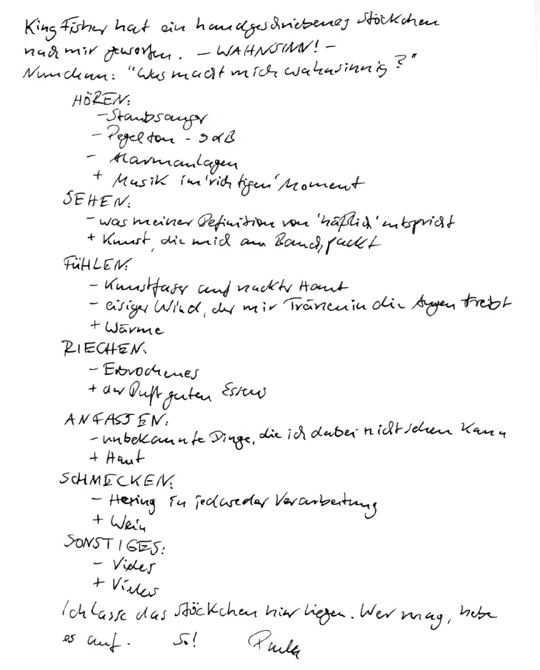 King Fisher hat ein handgeschriebenes Stöckchen
nach mir geworfen. - WAHNSINN! -
Nun denn: "Was macht mich wahnsinnig?"
HÖREN:
- Staubsauger
- Pegelton - 9dB
- Alarmanlagen
+ Musik im 'richtigen' Moment
SEHEN:
- was meiner Definition von 'häßlich' entspricht
+ Kunst, die mich am Bauch packt
FÜHLEN:
- Kunstfaser auf nackter Haut
- eisiger Wind, der mir Tränen in die Augen treibt
+ Wärme
RIECHEN:
- Erbrochenes
+ der Duft guten Essens
ANFASSEN:
- unbekannte Dinge, die ich dabei nicht sehen kann
+ Haut
SCHMECKEN:
- Hering in jedweder Verarbeitung
+ Wein
SONSTIGES:
- Vieles
+ Vieles
Ich lasse das Stöckchen hier liegen. Wer mag, hebe
es auf. So! Paula